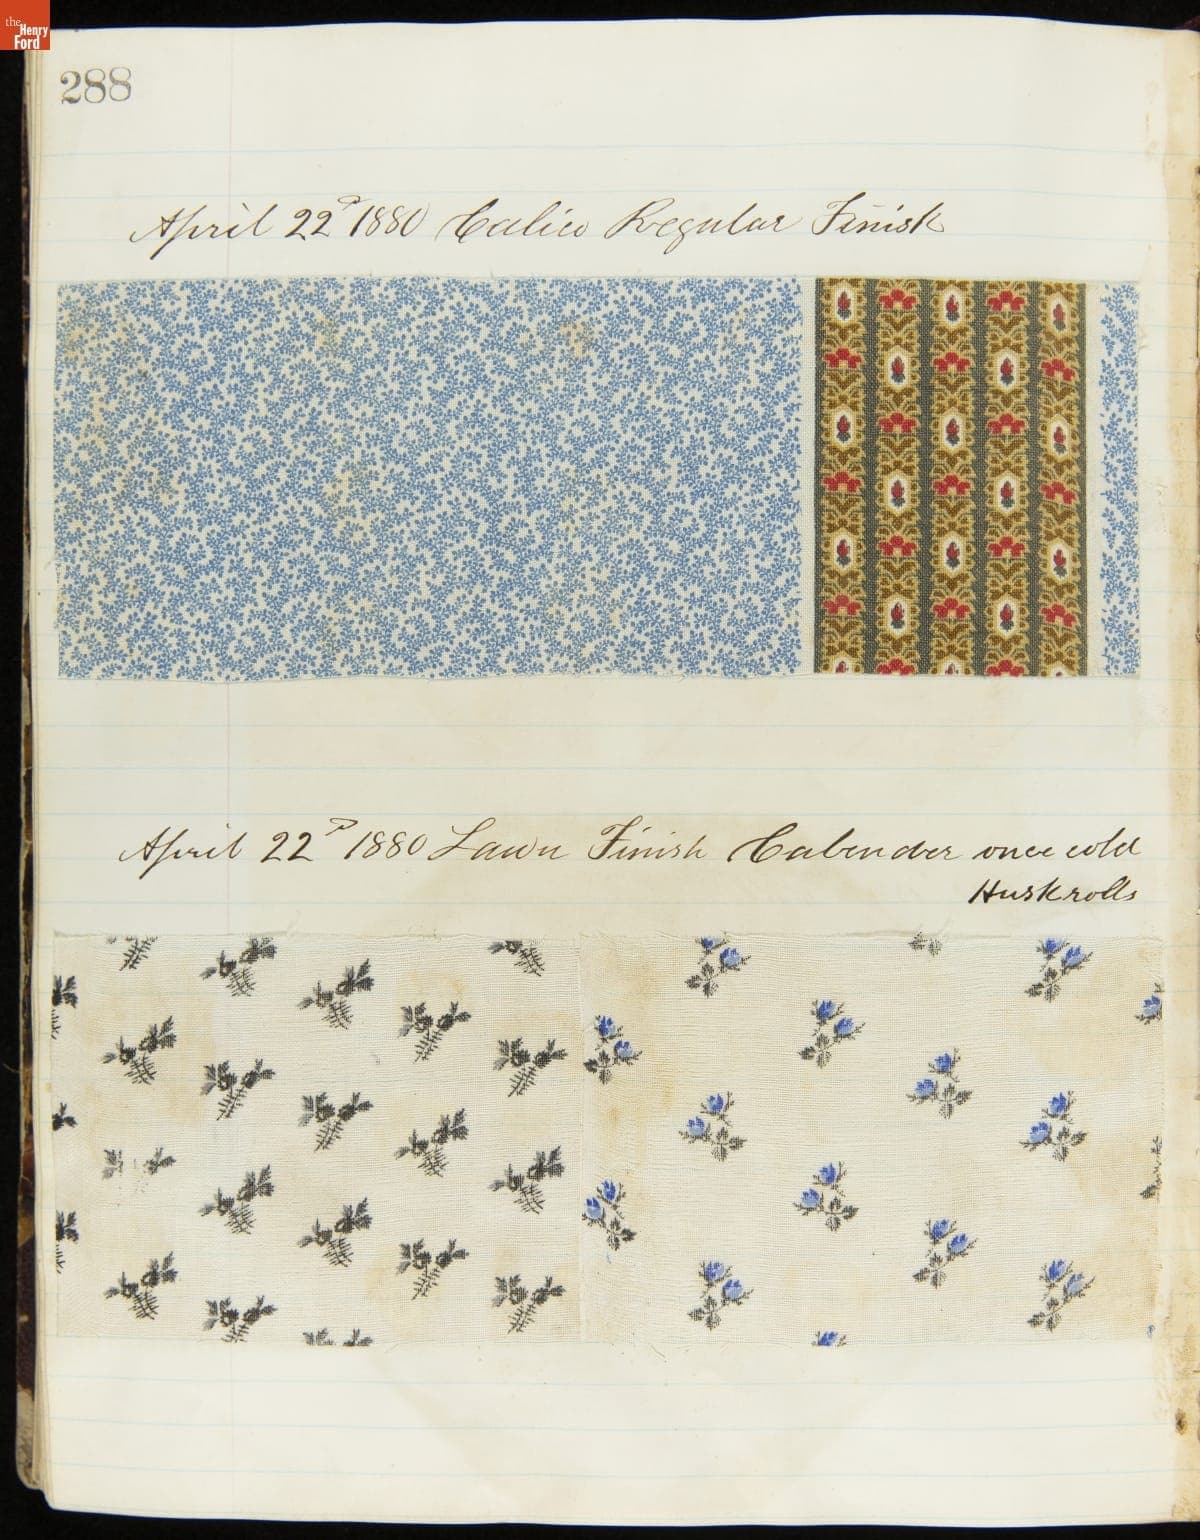 the
Henry
Ford
288
April 22d 1880 Calico Regular Finish
April 22d 1880 Lawn Finish Calender once cold
Husk rolls